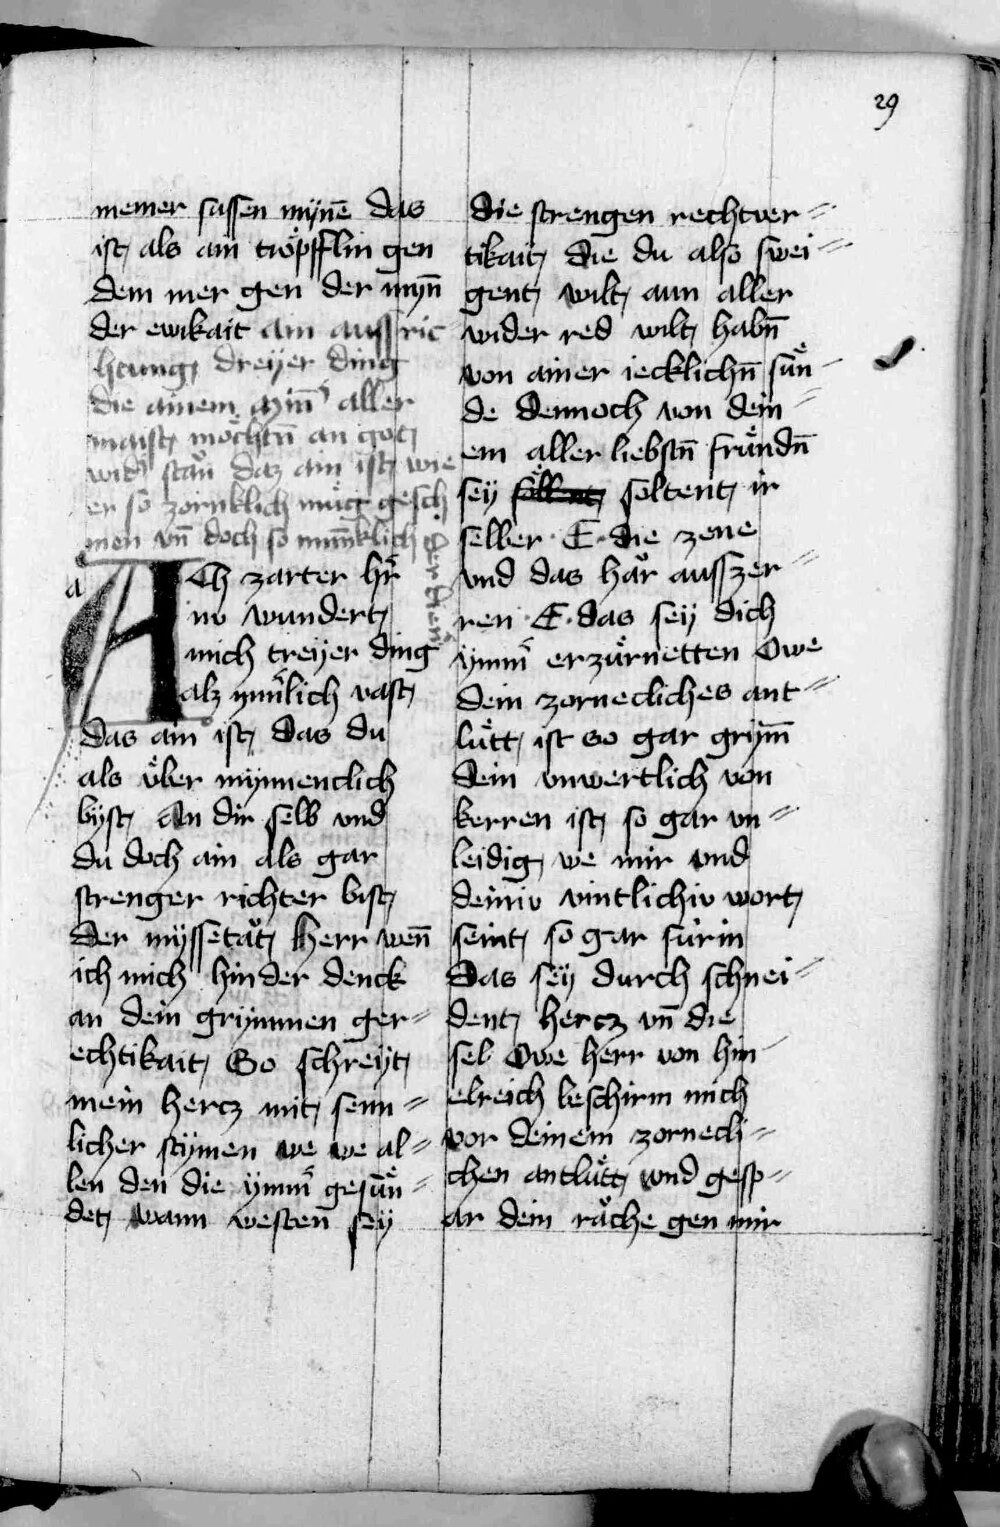 29
meiner sússen mÿnē das
ist als ain tröpfflin gen
dem mer gen der mÿn̄
der ewikait ain aussric
htung dreyer ding
die ainem
aller
maist möchtn̄ an got
wid̾ stan daz ain ist wie
er so zornklich mu̇g gesch
inen vn̄ doch so minnklich
a
ACh zarter hr̄
nu wundert
mich treÿer ding
alz ynn̄lich vast
das ain ist das du
als v̈ber mÿnnenclich
bÿst An dir selb vnd
du doch ain als gar
strenger richter bist
der mÿssetäͤt Herr wen̄
ich mich hinder denck
an dein grÿmmen ger=
echtikait So schreÿt
mein hercz mit senn=
licher stÿmen we we al=
len den die ymm̄ gesün=
det wann westen sey
die strengen rechtver=
tikait die du also swei=
gent wilt aun aller
wider red wilt habn̄
von ainer iecklichn̄ sün=
de dennoch von dein=
em aller liebstn̄ fründn̄
sey söllent soltent ir
selber · E · die zene
vnd das här ausszer=
ren · E · das sey dich
ymm̄ erzürnetten Owe
dein zornecliches ant=
lütt ist so gar grÿm̄
dein vnwertlich von
kerren ist so gar vn=
leidig we mir vnd
deiniv vintlichiv wort
seint so gar fúrin
Das sëy durch schnei=
dent hercz vn̄ die
sel Owe herr von him=
elreich beschirm mich
vor deinem zornecli=
chen antlütt vnd gesp=
ar dein räche gen mir